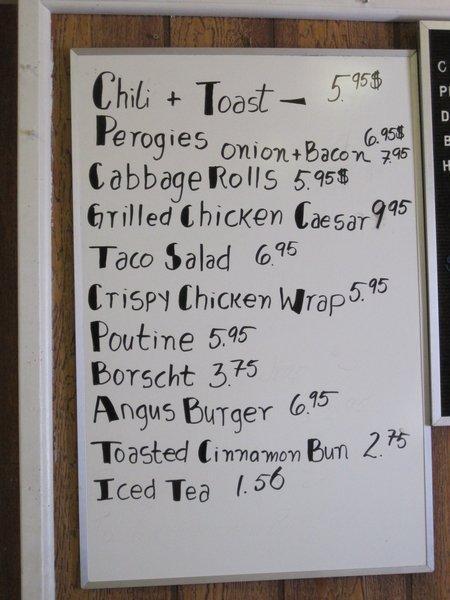 Chili + Toast - 5.95$
Perogies 6.95$
onion + Bacon 7.95
Cabbage Rolls 5.95$
Grilled Chicken Caesar 9.95
Taco Salad 6.95
Crispy Chicken Wrap 5.95
Poutine 5.95
Borscht 3.75
Angus Burger 6.95
Toasted Cinnamon Bun 2.75
Iced Tea 1.50
C
P
D
B
H